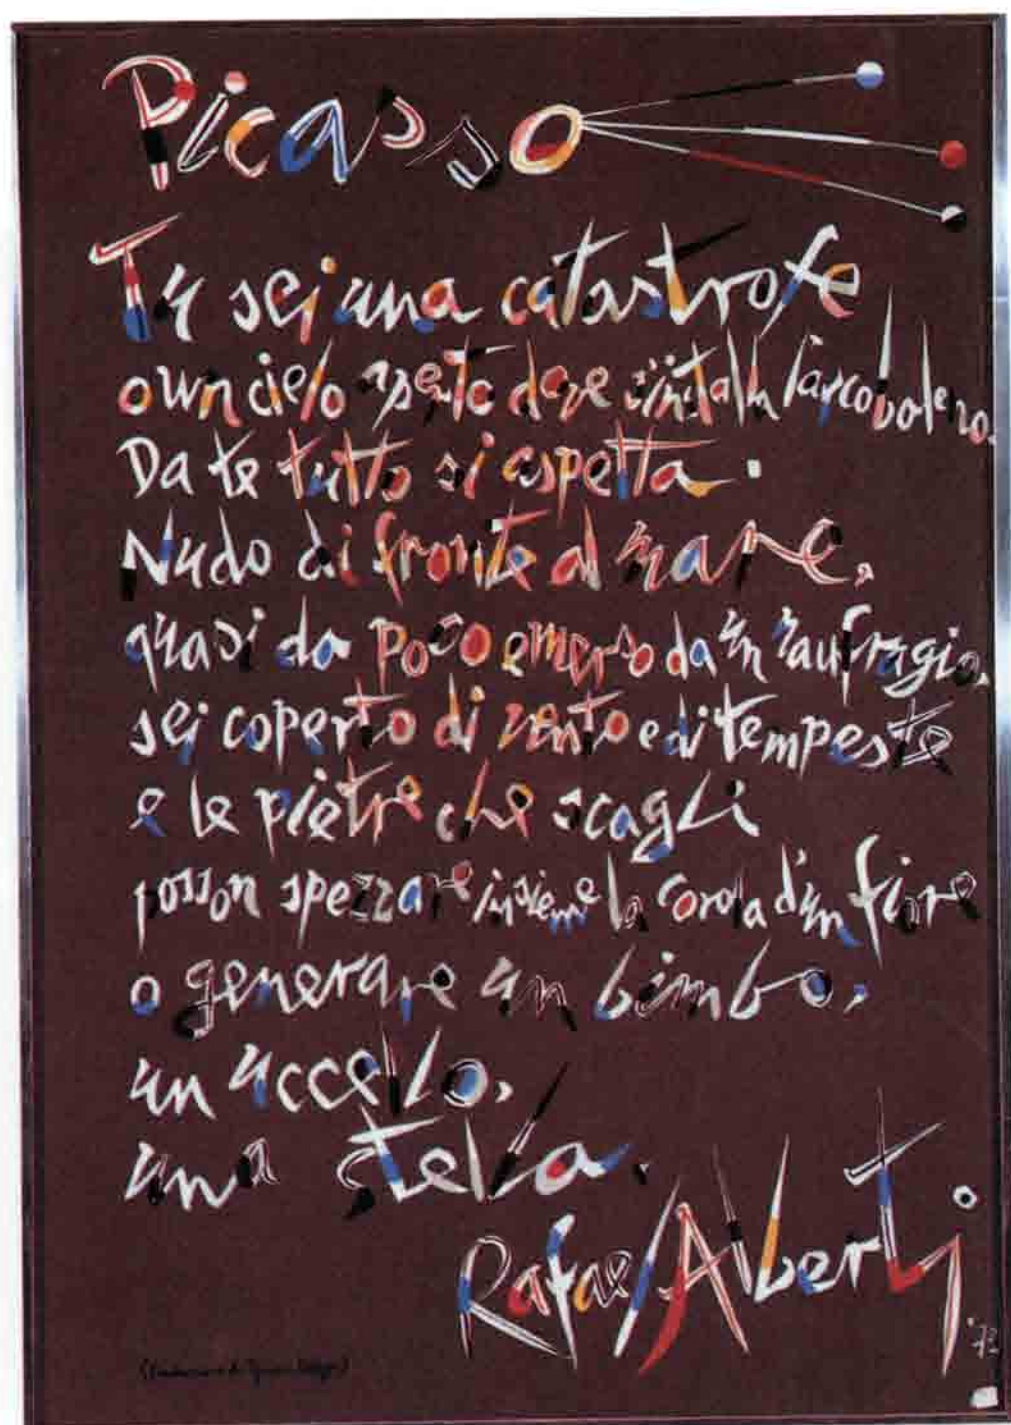 Picasso
Tu sei una catastrofe
o un cielo aperto dove s'installa l'arcobaleno.
Da te tutto si aspetta.
Nudo di fronte al mare,
quasi da poco emerso da un naufragio,
sei coperto di vento e di tempeste
e le pietre che scagli
posson spezzare insieme la corolla d'un fiore
o generare un bimbo,
un uccello,
una stella.
Rafael Alberti